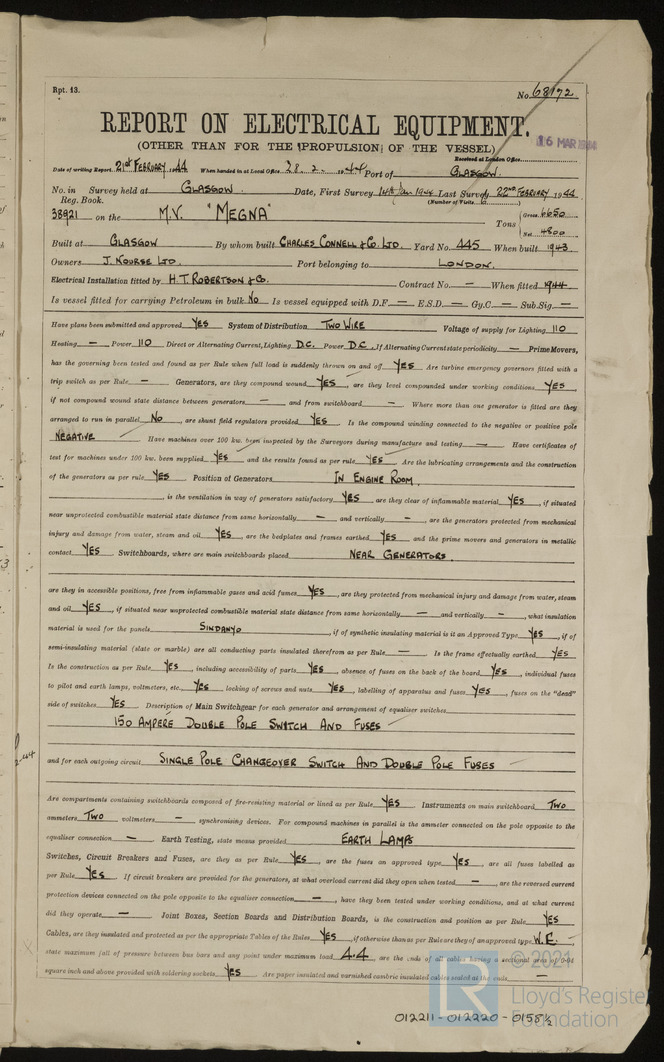 Rpt. 13.
No. 68172
REPORT ON ELECTRICAL EQUIPMENT.
(OTHER THAN FOR THE PROPULSION OF THE VESSEL)
16 MAR 1944
Received at London Office
Date of writing Report 21st FEBRUARY 1944 When handed in at Local Office 28. 2. 1944 Port of GLASGOW.
No. in Survey held at GLASGOW. Date, First Survey 14th Jan 1944 Last Survey 22nd FEBRUARY 1944
Reg. Book. (Number of Visits. 6)
38921 on the M.V. "MEGNA" Tons Gross 6650
Net 4800
Built at GLASGOW By whom built CHARLES CONNELL & CO. LTD. Yard No. 445 When built 1943
Owners J. NOURSE LTD. Port belonging to LONDON.
Electrical Installation fitted by H.T. ROBERTSON & CO. Contract No. — When fitted 1944
Is vessel fitted for carrying Petroleum in bulk NO Is vessel equipped with D.F. — E.S.D. — Gy.C. — Sub.Sig. —
Have plans been submitted and approved YES System of Distribution TWO WIRE Voltage of supply for Lighting 110
Heating — Power 110 Direct or Alternating Current, Lighting D.C. Power D.C. If Alternating Current state periodicity — Prime Movers,
has the governing been tested and found as per Rule when full load is suddenly thrown on and off YES Are turbine emergency governors fitted with a
trip switch as per Rule — Generators, are they compound wound YES, are they level compounded under working conditions YES,
if not compound wound state distance between generators — and from switchboard — Where more than one generator is fitted are they
arranged to run in parallel NO, are shunt field regulators provided YES Is the compound winding connected to the negative or positive pole
NEGATIVE Have machines over 100 kw. been inspected by the Surveyors during manufacture and testing — Have certificates of
test for machines under 100 kw. been supplied YES and the results found as per rule YES Are the lubricating arrangements and the construction
of the generators as per rule YES Position of Generators IN ENGINE ROOM.
, is the ventilation in way of generators satisfactory YES are they clear of inflammable material YES, if situated
near unprotected combustible material state distance from same horizontally — and vertically — are the generators protected from mechanical
injury and damage from water, steam and oil YES, are the bedplates and frames earthed YES and the prime movers and generators in metallic
contact YES Switchboards, where are main switchboards placed NEAR GENERATORS.
are they in accessible positions, free from inflammable gases and acid fumes YES, are they protected from mechanical injury and damage from water, steam
and oil YES, if situated near unprotected combustible material state distance from same horizontally — and vertically —, what insulation
material is used for the panels SINDANYO, if of synthetic insulating material is it an Approved Type YES, if of
semi-insulating material (slate or marble) are all conducting parts insulated therefrom as per Rule — Is the frame effectually earthed YES
Is the construction as per Rule YES, including accessibility of parts YES, absence of fuses on the back of the board YES, individual fuses
to pilot and earth lamps, voltmeters, etc. YES locking of screws and nuts YES, labelling of apparatus and fuses YES, fuses on the "dead"
side of switches YES Description of Main Switchgear for each generator and arrangement of equaliser switches
150 AMPERE DOUBLE POLE SWITCH AND FUSES
and for each outgoing circuit SINGLE POLE CHANGEOVER SWITCH AND DOUBLE POLE FUSES
Are compartments containing switchboards composed of fire-resisting material or lined as per Rule YES Instruments on main switchboard TWO
ammeters TWO voltmeters — synchronising devices. For compound machines in parallel is the ammeter connected to the pole opposite to the
equaliser connection — Earth Testing, state means provided EARTH LAMPS
Switches, Circuit Breakers and Fuses, are they as per Rule YES, are the fuses an approved type YES, are all fuses labelled as
per Rule YES If circuit breakers are provided for the generators, at what overload current did they open when tested —, are the reversed current
protection devices connected on the pole opposite to the equaliser connection —, have they been tested under working conditions, and at what current
did they operate — Joint Boxes, Section Boards and Distribution Boards, is the construction and position as per Rule YES
Cables, are they insulated and protected as per the appropriate Tables of the Rules YES, if otherwise than as per Rule are they of an approved type W.E.,
state maximum fall of pressure between bus bars and any point under maximum load 4.4 are the ends of all cables having a sectional area of 0.04
square inch and above provided with soldering sockets YES Are paper insulated and varnished cambric insulated cables sealed at the ends —
© 2021
Lloyd's Register
Foundation
012211-012220-0158½